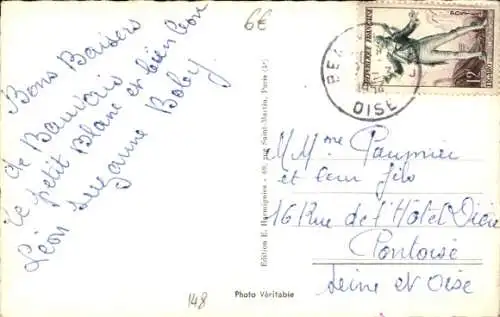 6€
Bons Baisers
de Beauvais
le petit Blanc et bien Léon
Léon Suzanne Boby
Edition E. Hurmignies - 69, rue Saint-Martin, Paris (4e)
148
Photo Véritable
RÉPUBLIQUE FRANÇAISE
12F
BEAUVAIS
OISE
M Mme Paumier
et leur fils
16 Rue de l'Hôtel Dieu
Pontoise
Seine et Oise